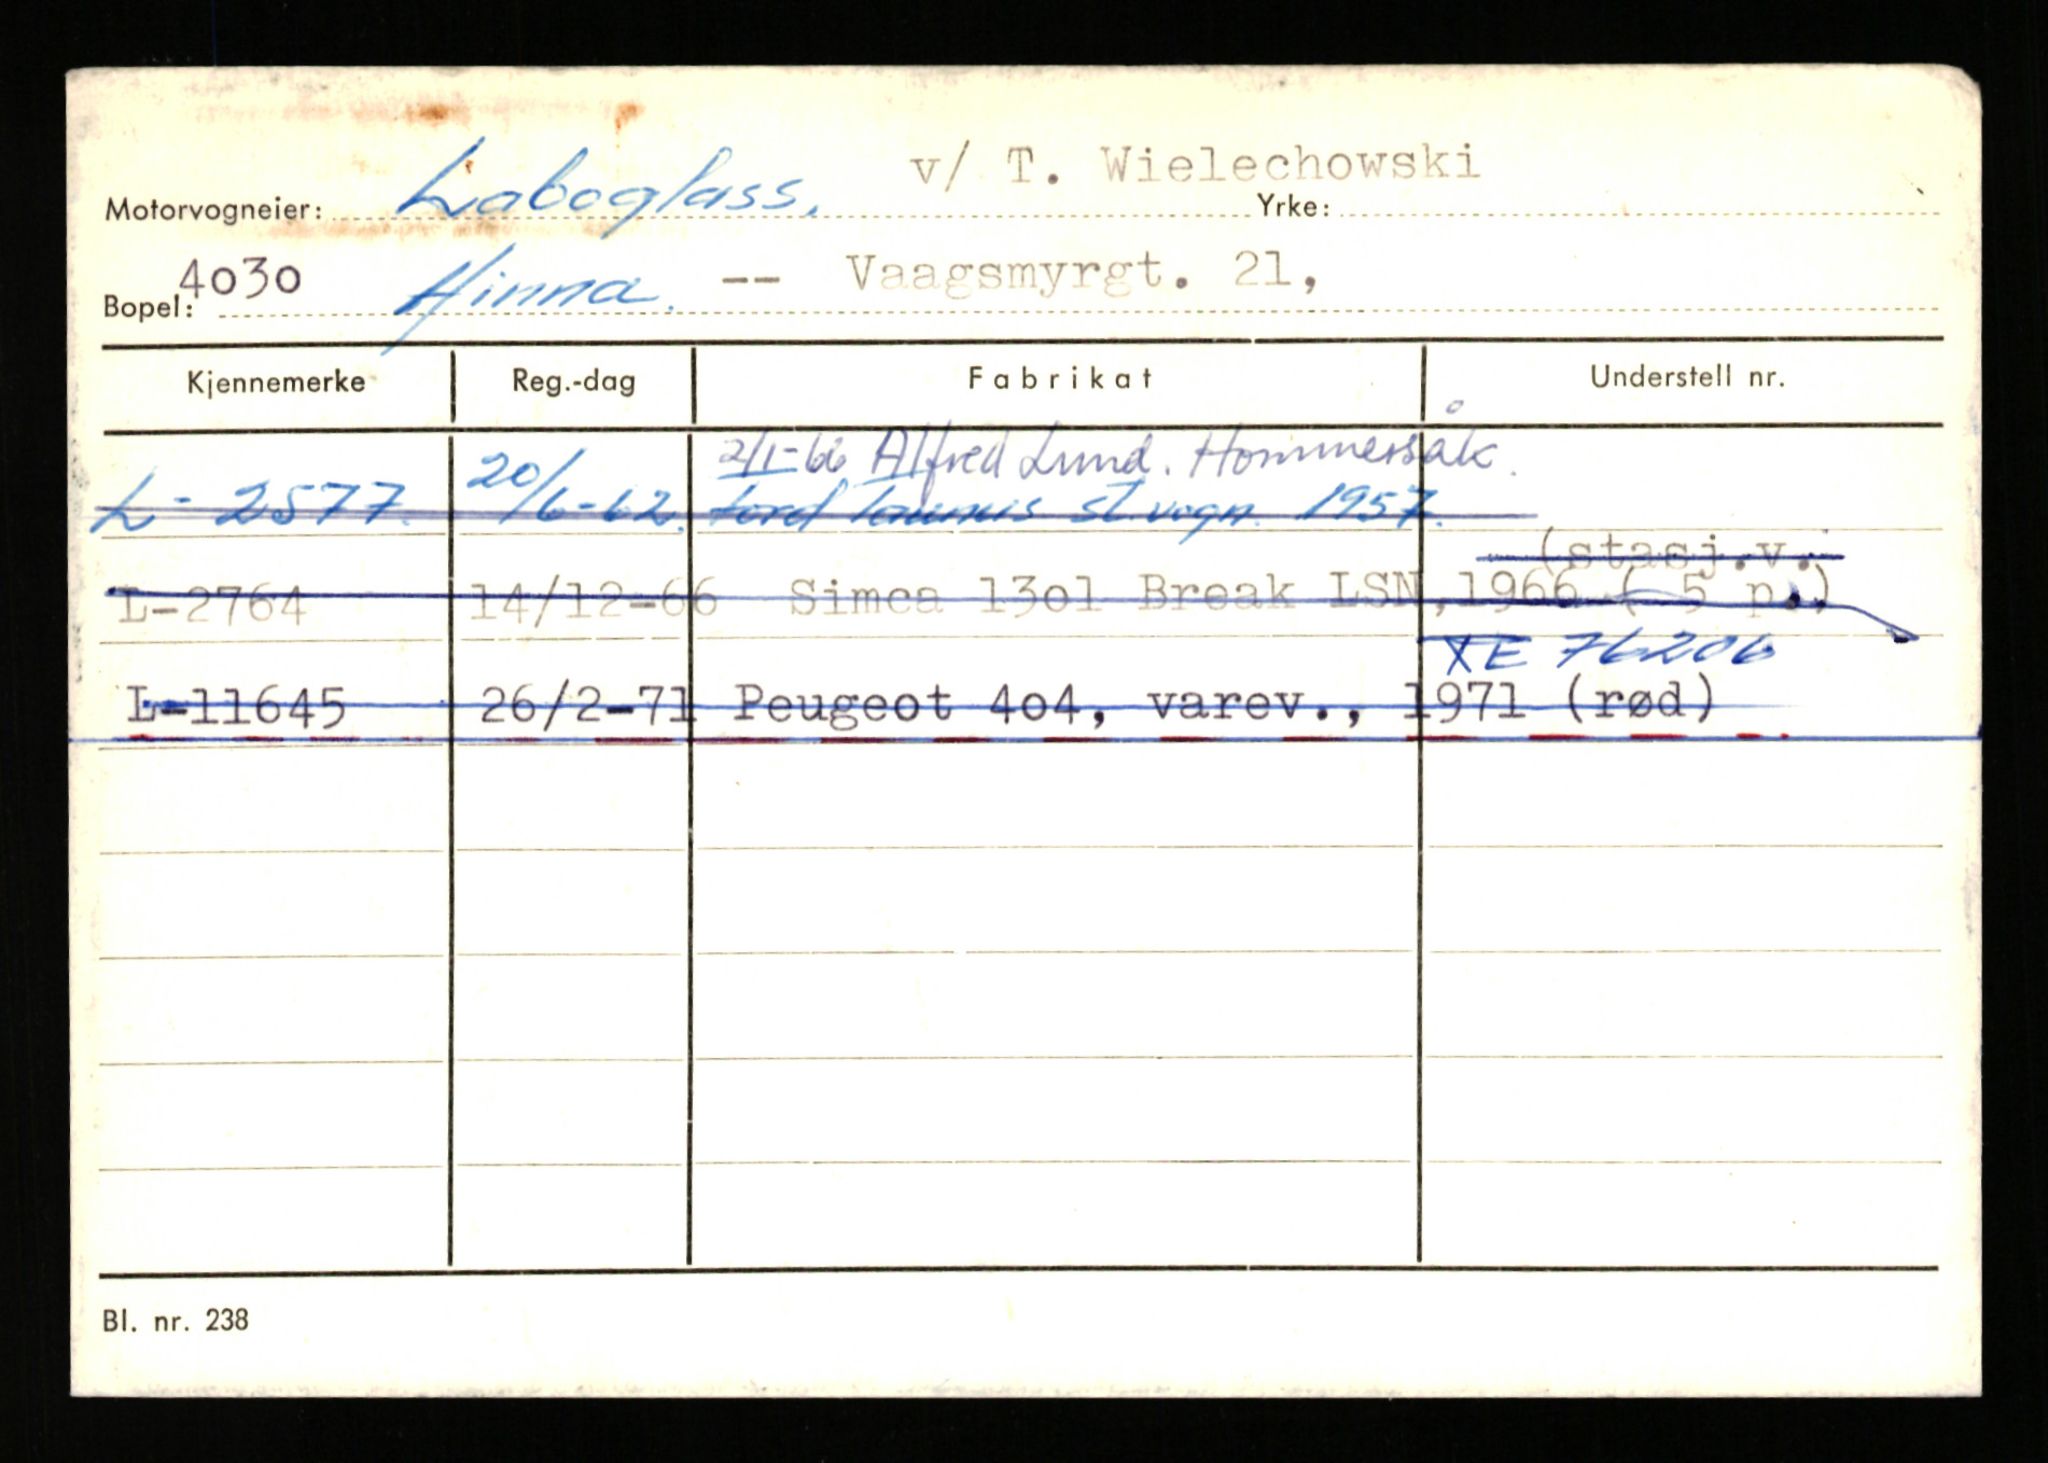 v/ T. Wielechowski
Motorvogneier: Laboglass. Yrke:
Bopel: 4030 Hinna. -- Vaagsmyrgt. 21,
Kjennemerke Reg.-dag Fabrikat Understell nr.
2/1-66 Alfred Lund. Hommersåk.
L- 2577. 20/6-62. Ford Taunus st.vogn. 1957.
(stasj.v.
L-2764 14/12-66 Simca 13o1 Break LSN,1966 ( 5 p.)
XE 76206
L-11645 26/2-71 Peugeot 4o4, varev., 1971 (rød)
Bl. nr. 238